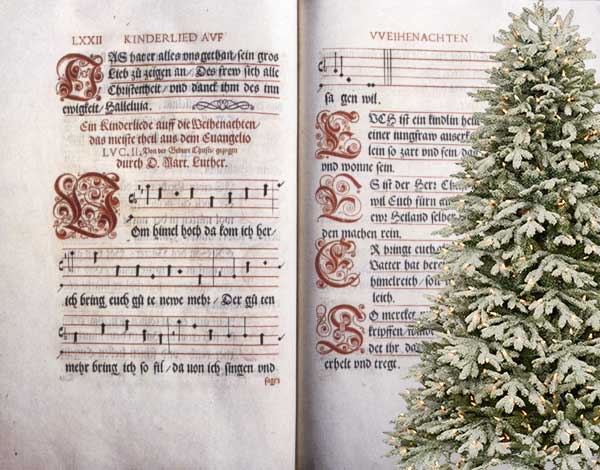 LXXII KINDERLIED AVF
DAS hat er alles vns gethan / sein gros
Lieb zů zeigen an / Des frew sich alle
Christenheit / vnd danck ihm des inn
ewigkeit / Halleluia.
Ein Kinderliede auff die Weihenachten /
das meiste theil aus dem Euangelio
LVC. II. Von der Geburt Christi / gezogen
durch D. Mart. Luther.
Vom himel hoch da kom ich her /
ich bring euch gů te newe mehr / Der gů ten
mehr bring ich so fil / da von ich singen vnd
sagen
VVEIHENACHTEN
sa gen wil.
EVCH ist ein kindlin heut
einer iungfraw auserk
lein so zart vnd sein / da
vnd wonne sein.
ES ist der Her: Christ
wil Euch fürn aus
ew: Heiland selber
den machen rein.
ER bringt euch
Vatter hat bere
himelreich / sol
leich.
SO mercket
kripffen /
det ihr da
erhelt vnd tregt.